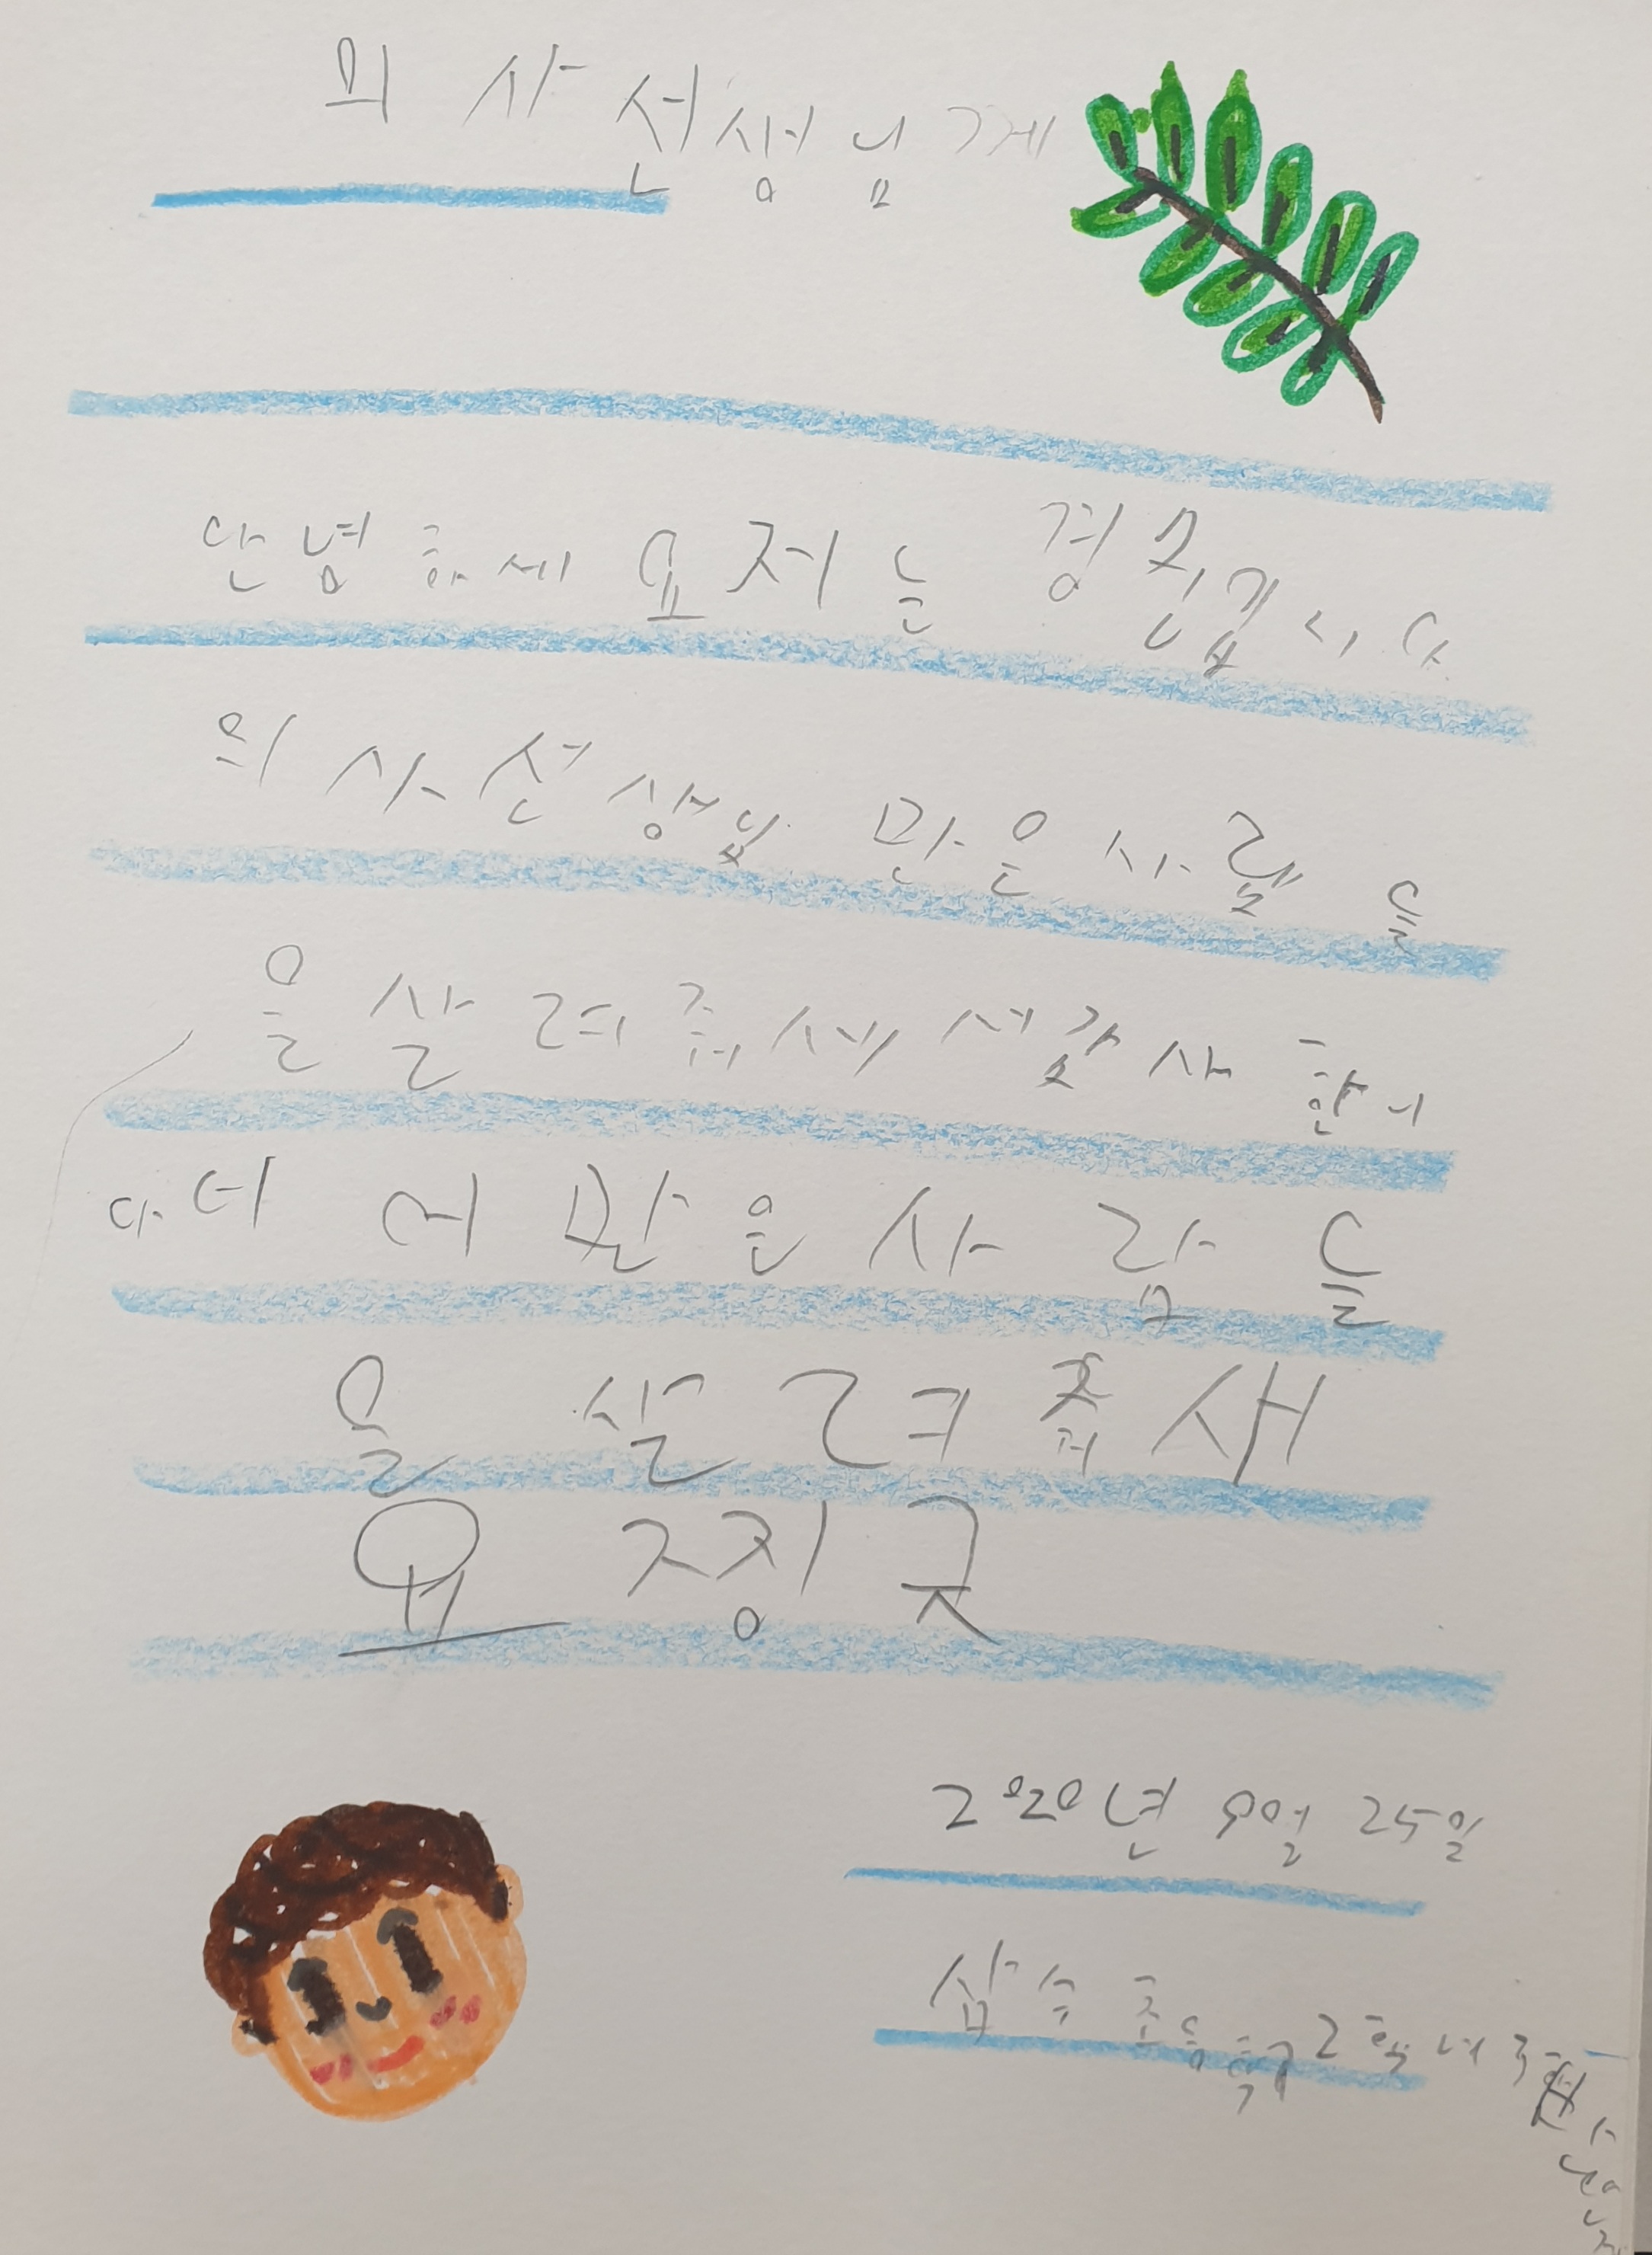 의사선생님게
안녕하세요저는 경찬입니다
의사선생님 만은사람들
을살려줘세 생각사 한니
다더 어 만은사람들
을 살려줘새
요
2020년 9월 25일
삼숭초등학교2학년3반